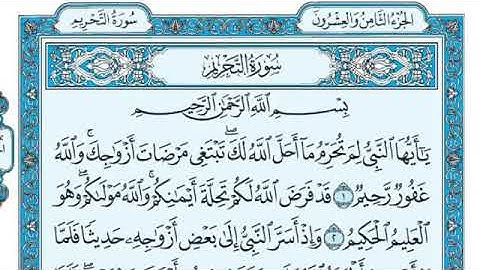 الجُزْءُ الثَّامِنُ وَالعِشْرُونَ سُورَةُ التَّحْرِيمِ
سُورَةُ التَّحْرِيمِ
بِسْمِ اللَّهِ الرَّحْمَٰنِ الرَّحِيمِ
يَٰٓأَيُّهَا ٱلنَّبِيُّ لِمَ تُحَرِّمُ مَآ أَحَلَّ ٱللَّهُ لَكَۖ تَبْتَغِي مَرْضَاتَ أَزْوَٰجِكَۚ وَٱللَّهُ
غَفُورٞ رَّحِيمٞ ١ قَدْ فَرَضَ ٱللَّهُ لَكُمْ تَحِلَّةَ أَيْمَٰنِكُمْۚ وَٱللَّهُ مَوْلَىٰكُمْۖ وَهُوَ
ٱلْعَلِيمُ ٱلْحَكِيمُ ٢ وَإِذْ أَسَرَّ ٱلنَّبِيُّ إِلَىٰ بَعْضِ أَزْوَٰجِهِۦ حَدِيثٗا فَلَمَّا